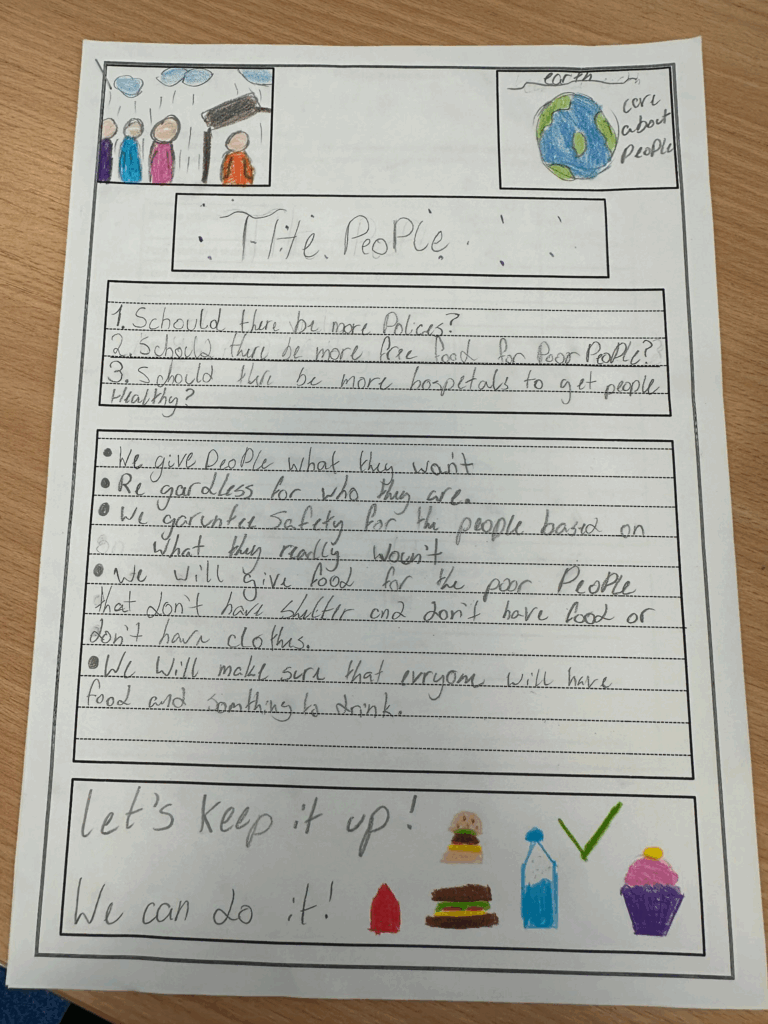 earth
care
about
people
THe PeoPle
1. Schould there be more Polices?
2. Schould there be more free food for Poor People?
3. Schould there be more hospetals to get people
Healthy?
• We give PeoPle what they wan't
• Re gardless for who they are.
• We garuntee safety for the people based on
what they really wan't
• We will give food for the poor People
that don't have shelter and don't have food or
don't have clothes.
• We will make sure that evryone will have
food and somthing to drink.
Let's keep it up!
We can do it!